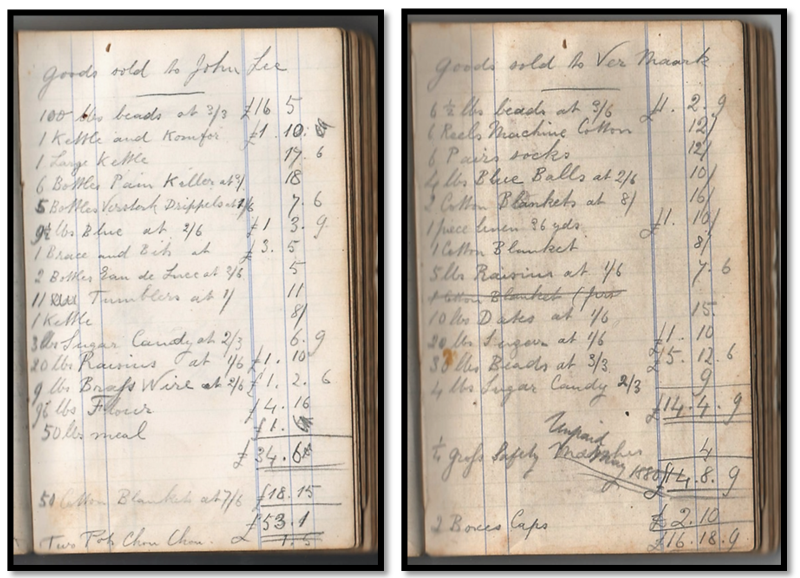 Goods sold to John Lee
100 lbs beads at 3/3 £16 5
1 Kettle and Komfoi £1. 10.
1 Large Kettle 17. 6
6 Bottles Pain Killer at 3/ 18
5 Bottles Versterk Drippels at 1/6 7. 6
9½ lbs Blue at 2/6 £1 3. 9
1 Brace and Bits at £3. 5
2 Bottles Eau de Luce at 2/6 5
11 Tumblers at 1/ 11
1 Kettle 8/
3 lbs Sugar Candy at 2/3 6. 9
20 lbs Raisins at 1/6 £1. 10
9 lbs Brass Wire at 2/6 £1. 2. 6
lbs Flour £4. 16
50 lbs meal £1.
£34. 6
50 Cotton Blankets at 7/6 £18. 15
£53. 1
Two Pots Chow Chow. 1. 5
Goods sold to Ver Maark
6 ½ lbs beads at 3/6 £1. 2. 9
6 Reels Machine Cotton 12/
6 Pairs socks 12/
4 lbs Blue Balls at 2/6 10/
2 Cotton Blankets at 8/ 16/
1 piece linen 36 yds £1. 10/
1 Cotton Blanket 8/
5 lbs Raisins at 1/6 7. 6
1 Cotton Blanket
10 lbs Dates at 1/6 15.
20 lbs Sugar at 1/6 £1. 10
30 lbs Beads at 3/3 £5. 12. 6
4 lbs Sugar Candy 2/3 9
£14. 4. 9
Unpaid
May 1880
gross Safety Matches 4
£14. 8. 9
2 Boxes Caps £2. 10
£16. 18. 9